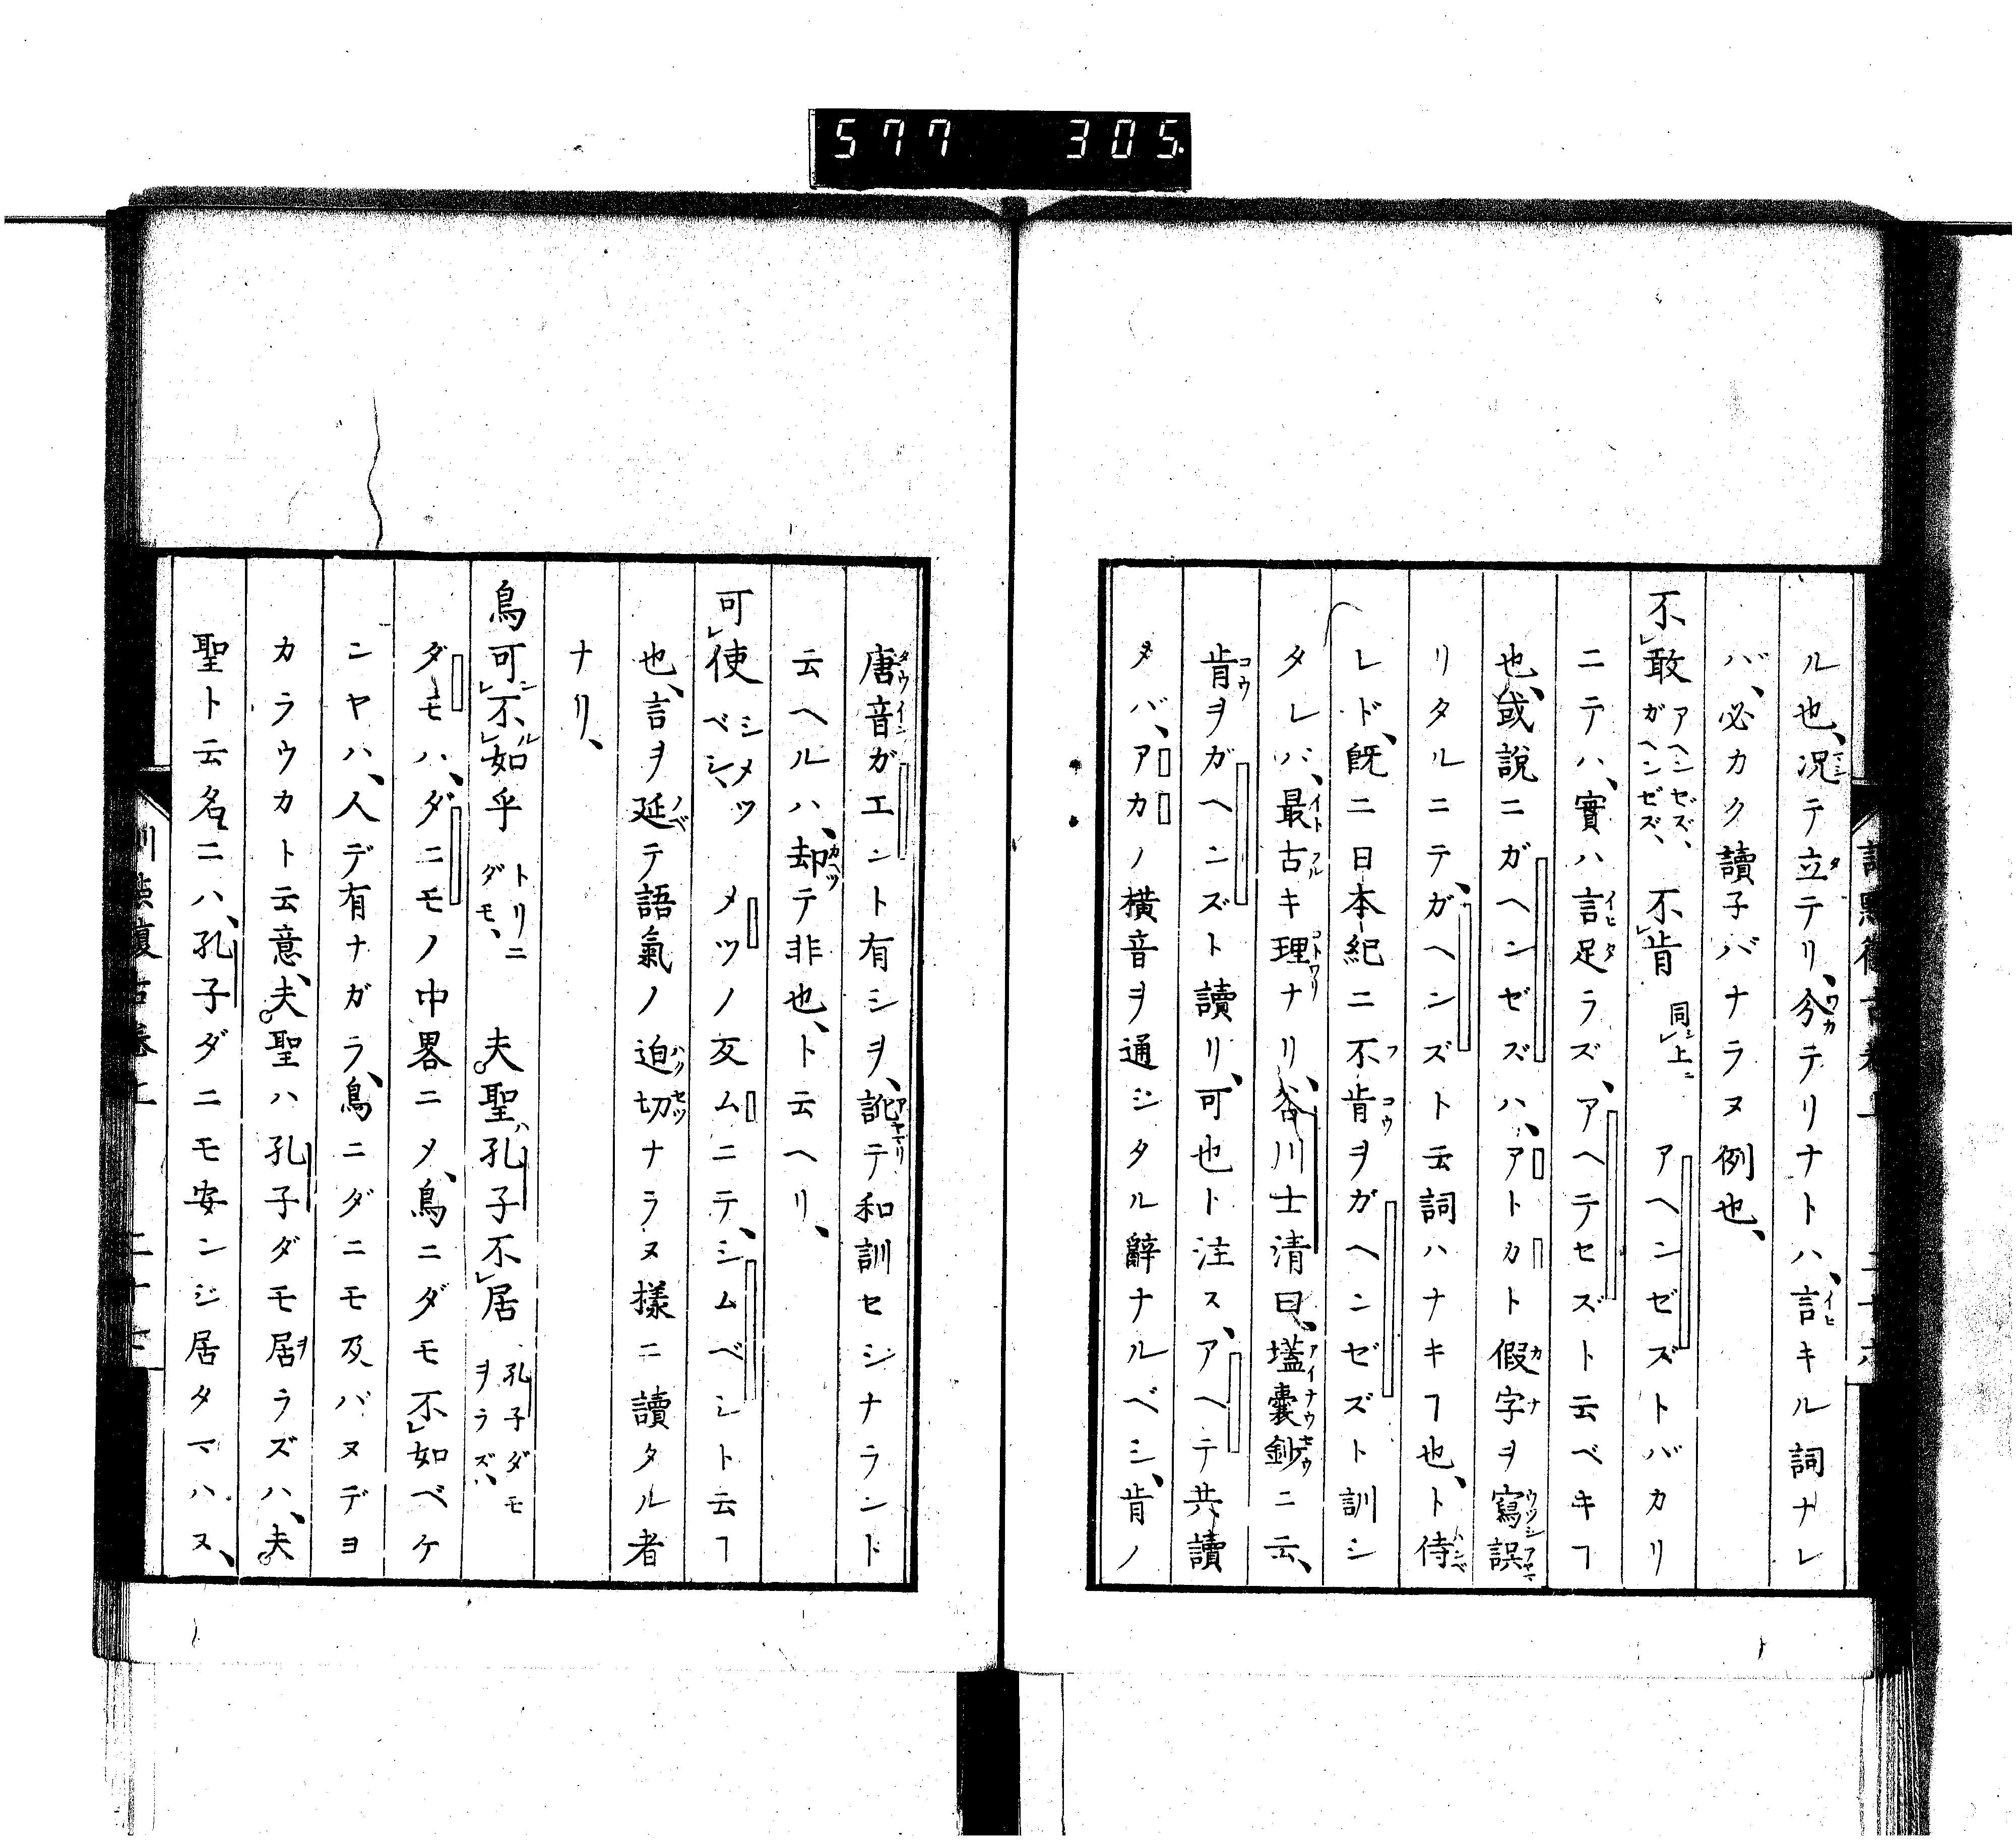 577 305
ル也、况テ立テリ、分テリナトハ、言キル詞ナレ
バ、必カク讀子バナラヌ例也、
不敢 アヘンゼズ、ガヘンゼズ、 不肯 同上ニ アヘンゼズトバカリ
ニテハ、實ハ言足ラズ、アヘテセズト云ベキヿ
也、或說ニガヘンゼズハ、アトカト假字ヲ寫誤
リタルニテ、ガヘンズト云詞ハナキヿ也、ト侍
レド、既ニ日本紀ニ不肯ヲガヘンゼズト訓シ
タレバ、最古キ理ナリ、谷川士清曰、壒囊鈔ニ云、
肯ヲガヘンズト讀リ、可也ト注ス、アヘテ共讀
タバ、アカノ横音ヲ通シタル辭ナルベシ、肯ノ
唐音ガエント有シヲ、訛テ和訓セシナラント
云ヘルハ、却テ非也、ト云ヘリ、
可使 シメツベシ、 メツノ反ムニテ、シムベシト云ヿ
也、言ヲ延テ語氣ノ迫切ナラヌ樣ニ讀タル者
ナリ、
鳥可不如乎 トリニダモ、 夫聖ハ孔子不居 孔子ダモヲラズ、
ダモハ、ダニモノ中畧ニメ、鳥ニダモ不如ベケ
ンヤハ、人デ有ナガラ、鳥ニダニモ及バヌデヨ
カラウカト云意、夫聖ハ孔子ダモ居ラズハ、夫
聖ト云名ニハ、孔子ダニモ安ンシ居タマハス、